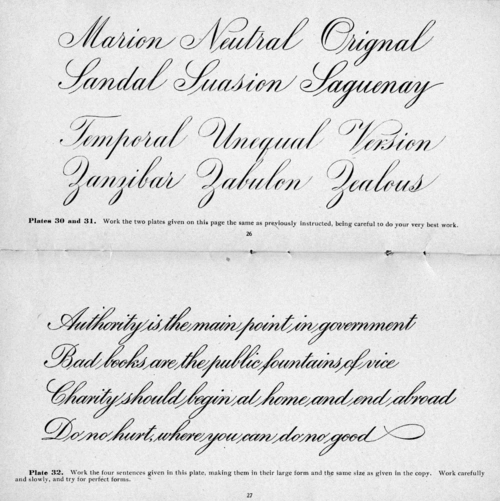 Marion Neutral Orignal
Sandal Suasion Saguenay
Temporal Unequal Version
Zanzibar Zabulon Zealous
Plates 30 and 31. Work the two plates given on this page the same as previously instructed, being careful to do your very best work.
26
Authority is the main point in government
Bad books are the public fountains of vice
Charity should begin at home and end abroad
Do no hurt, where you can do no good
Plate 32. Work the four sentences given in this plate, making them in their large form and the same size as given in the copy. Work carefully
and slowly, and try for perfect forms.
27